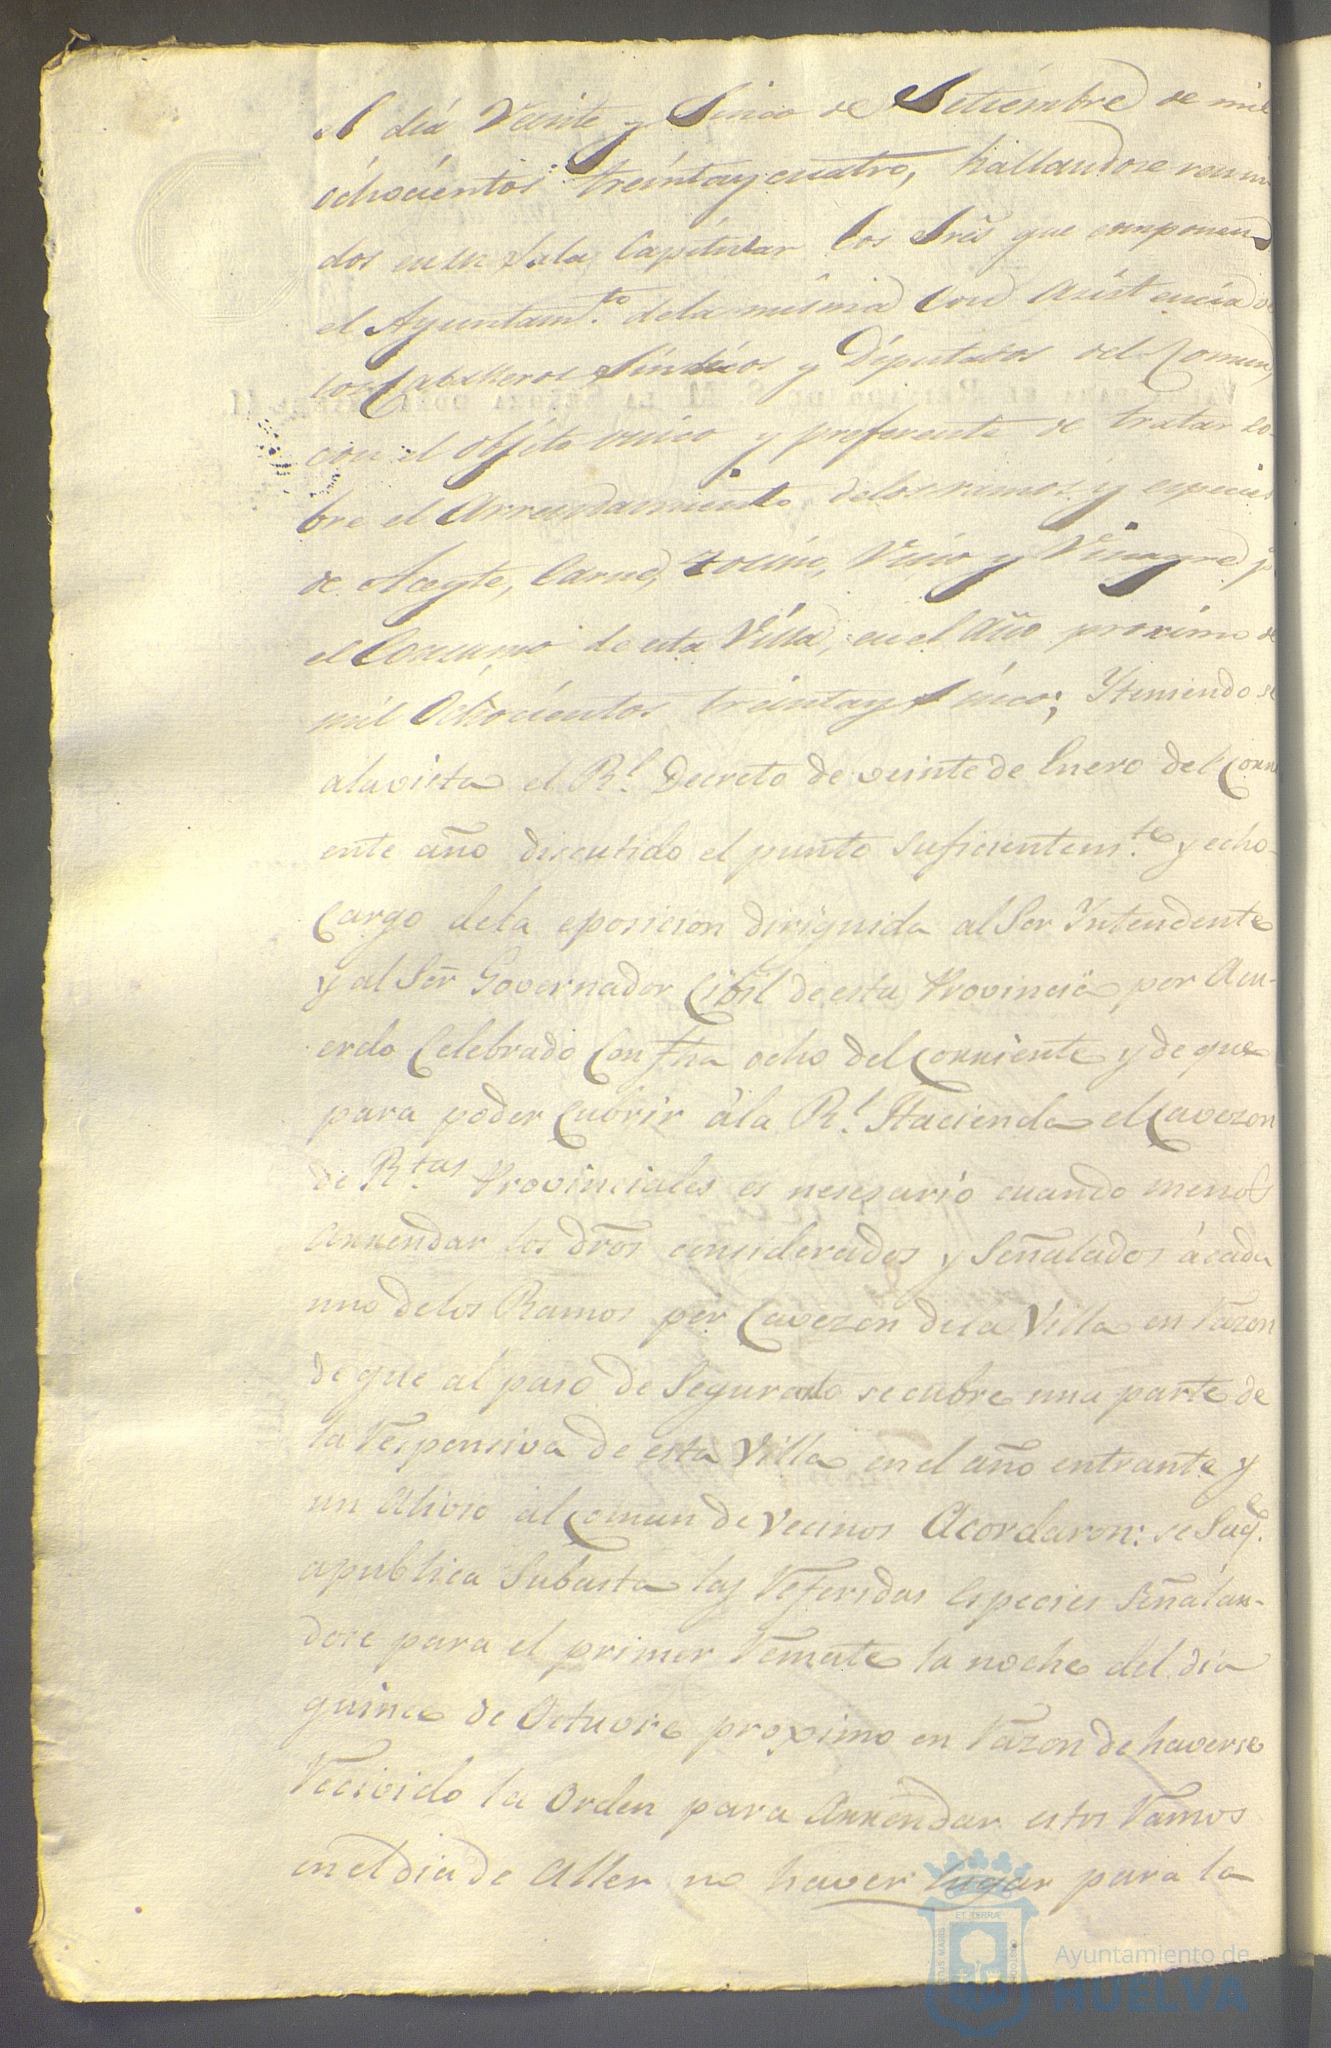 el dia Veinte y Sinco de Setiembre de mil
ochocientos treintaycuatro, hallandose reuni
dos en su Sala Capitular los Sres que componen
el Ayuntam.to dela misma con asistencia de
los Caballeros Sindicos y Diputados del Comun,
con el objeto unico y preferente de tratar so-
bre el Arrendamiento delos ramos y especies
de Aceyte, Carne, tocino, Vino y Vinagre p
el Consumo de esta Villa, en el Año proximo de
mil Ochocientos treintay Sinco; Yteniendose
alavista el Rl. Decreto de veinte de Enero del Corri
ente año discutido el punto suficientem.te y echo
Cargo dela eposicion diriguida al Sor Yntendente
y al Señ Governador Cibil de esta Provincia, por Acu-
erdo Celebrado Con fha ocho del Corriente y de que
para poder Cubrir ála Rl. Hacienda el Cavezon
de R.tas Provinciales es nesesario cuando menos
Arrendar los dros considerados y Señalados ácada
uno delos Ramos por Cavezon dela Villa en razon
de que al paso de Segurado se cubre una parte de
la responsiva de esta Villa en el año entrante y
un Alivio al Comun de Vecinos Acordaron: se Saq.
apublica Subasta las referidas Especies Señalan-
dose para el primer remate la noche del dia
quince de Octuvre proximo en razon de haverse
recivido la Orden para Arrendar estos ramos
en el dia de Aller no haver lugar para la
Ayuntamiento de
HUELVA